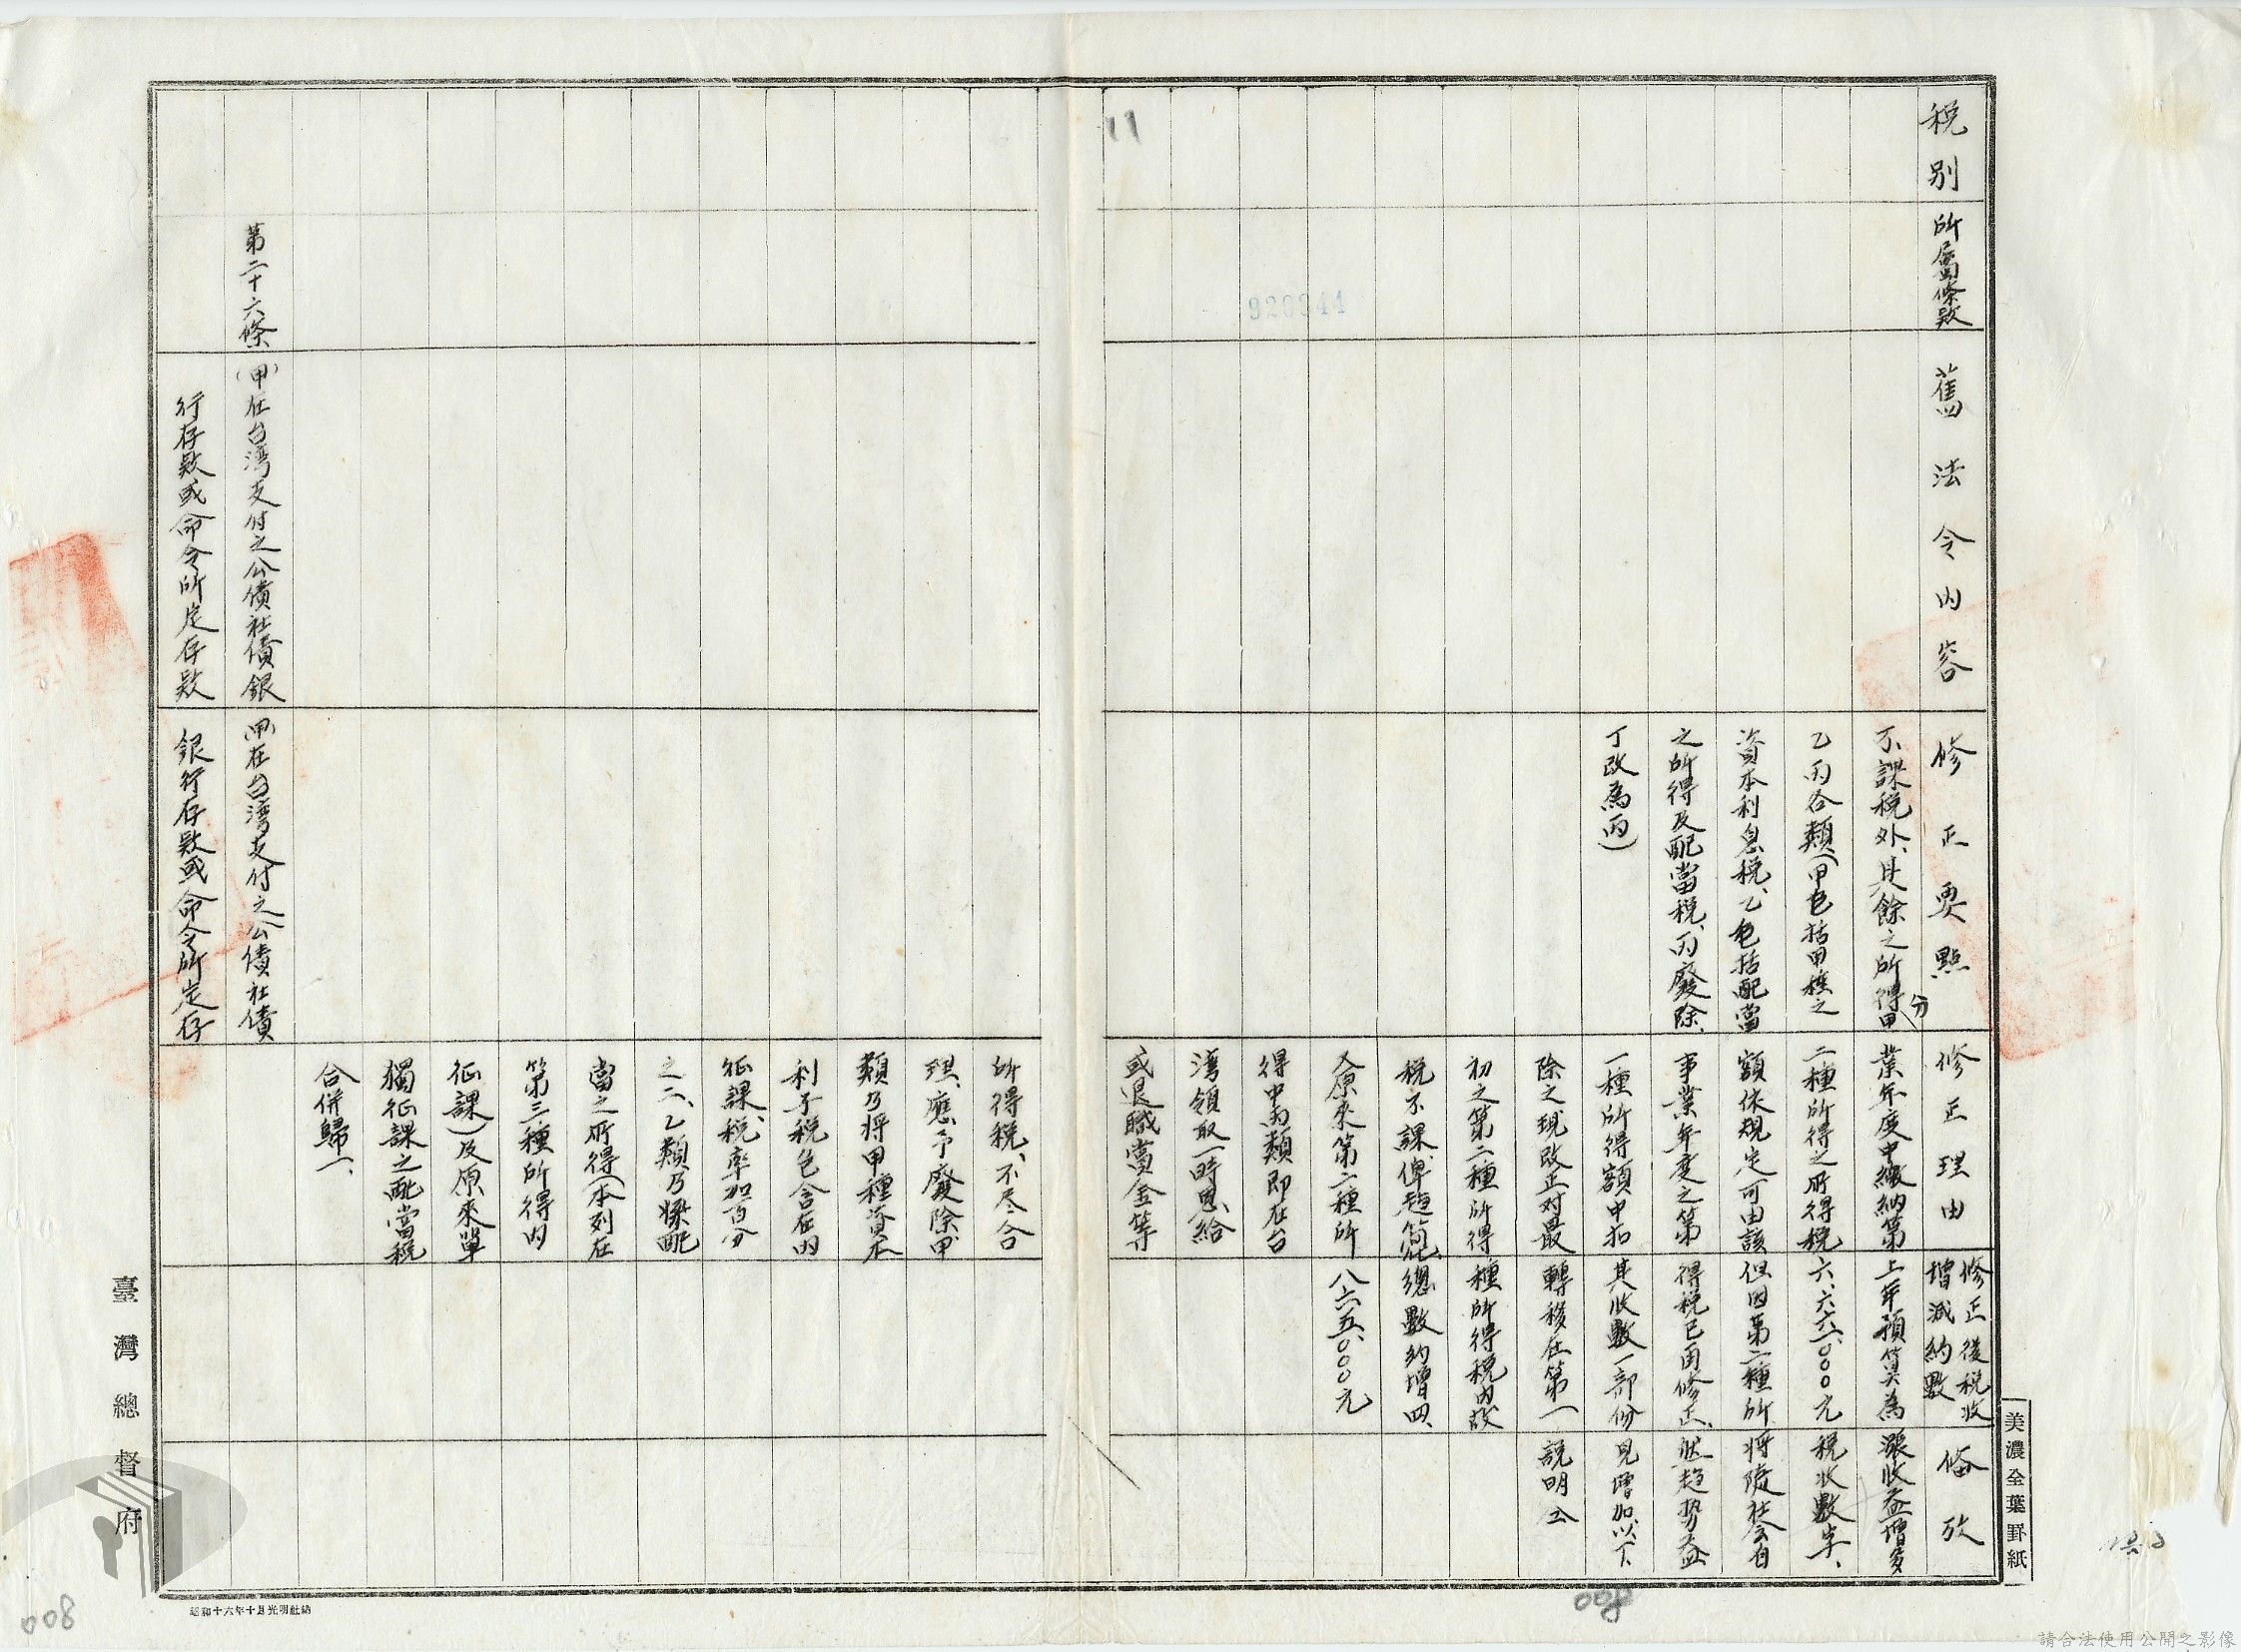 税別
所屬條款
舊法令內容
修正要點
修正理由
修正後税收
增減約數
備攷
不課税外、其餘之所得分甲
乙丙各類(甲包括甲種之
資本利息税、乙包括配當
之所得及配當税、丙廢除、
丁改為丙)
業年度中繳納第
二種所得之所得税
額依規定可由該
事業年度之第
一種所得額中扣
除之現改正对最
初之第二種所得
税不課、俾趨簡化、
又原來第二種所
得中丙類即在台
湾領取一時恩給
或退職賞金等
上年預算為
六、六六六、〇〇〇元
但因第二種所
得税已再修正、
其收數一部份
轉移在第一
種所得税內故
總數約增四、
八六五、〇〇〇元
漲收益增多
税收數字、
將隨社会自
然趨势益
見增加、以下
說明仝
11
920344
所得税、不尽合
理、應予廢除、甲
類乃將甲種資本
利子税包含在內
征課、税率加百分
之二、乙類乃將配
當之所得(本列在
第三種所得內
征課)及原來單
獨征課之配當税
合併歸一、
第二十六條
(甲)在台湾支付之公債社債銀
行存款或命令所定存款
(甲)在台湾支付之公債社債
銀行存款或命令所定存
臺灣總督府
美濃全葉罫紙
昭和十六年十月光明社納
008
008
請合法使用公開之影像